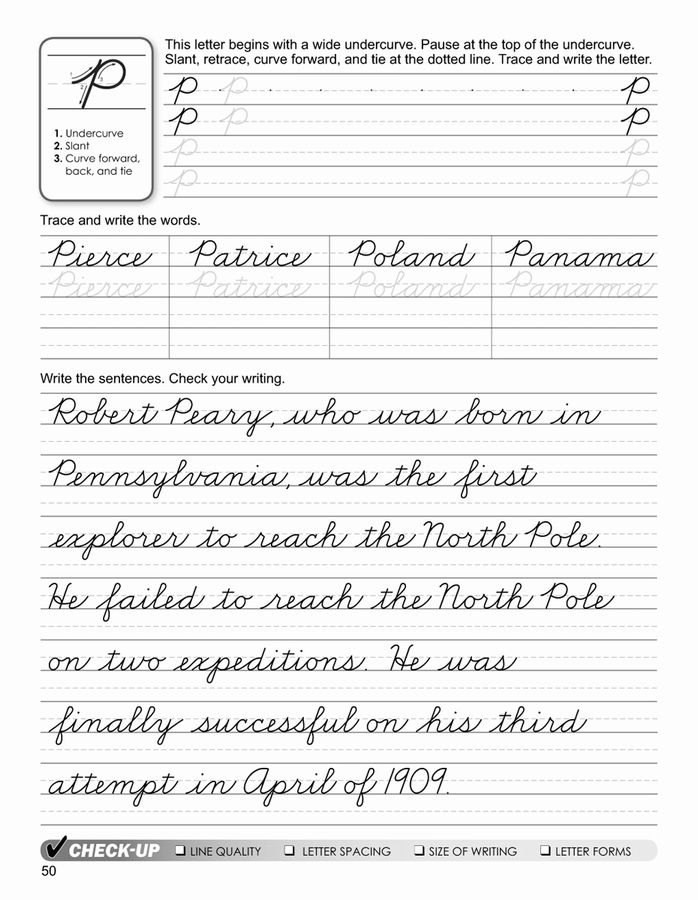 This letter begins with a wide undercurve. Pause at the top of the undercurve.
Slant, retrace, curve forward, and tie at the dotted line. Trace and write the letter.
P
1
2
3
1. Undercurve
2. Slant
3. Curve forward,
back, and tie
P P P
P P P
P P
P P
Trace and write the words.
Pierce Patrice Poland Panama
Pierce Patrice Poland Panama
Write the sentences. Check your writing.
Robert Peary, who was born in
Pennsylvania, was the first
explorer to reach the North Pole.
He failed to reach the North Pole
on two expeditions. He was
finally successful on his third
attempt in April of 1909.
CHECK-UP LINE QUALITY LETTER SPACING SIZE OF WRITING LETTER FORMS
50